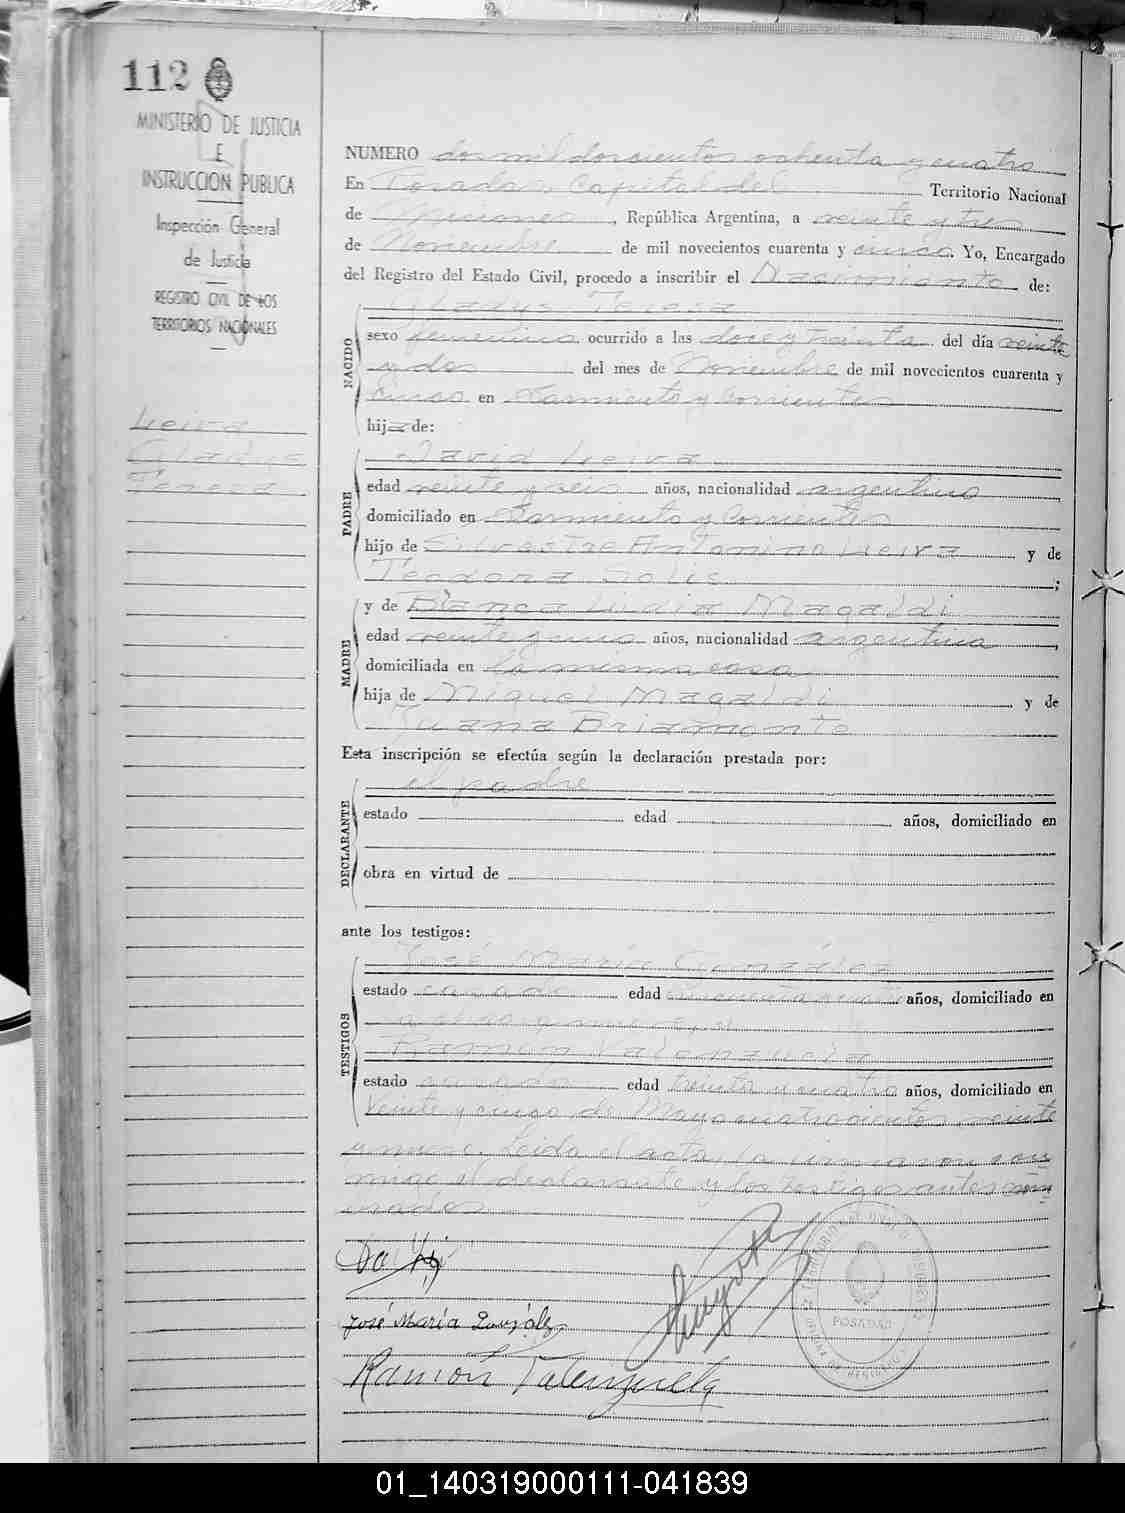 112
MINISTERIO DE JUSTICIA
E
INSTRUCCION PUBLICA
Inspección General
de Justicia
REGISTRO CIVIL DE LOS
TERRITORIOS NACIONALES
Leiva
Gladys
Teresa
NUMERO dos mil doscientos ochenta y cuatro
En Posadas, Capital del Territorio Nacional
de Misiones, República Argentina, a veinte y tres
de Noviembre de mil novecientos cuarenta y cinco. Yo, Encargado
del Registro del Estado Civil, procedo a inscribir el Nacimiento de:
NACIDO
Gladys Teresa
sexo femenino, ocurrido a las doce y treinta del día veinte
y dos del mes de Noviembre de mil novecientos cuarenta y
cinco en Sarmiento y Corrientes
hija de:
PADRE
David Leiva
edad veinte y seis años, nacionalidad argentino
domiciliado en Sarmiento y Corrientes
hijo de Silvestre Antonino Leiva y de
Teodora Solis;
MADRE
y de Blanca Lidia Magaldi
edad veinte y uno años, nacionalidad argentina,
domiciliada en la misma casa
hija de Miguel Magaldi y de
Juana Briamonte
Esta inscripción se efectúa según la declaración prestada por:
DECLARANTE
el padre
estado edad años, domiciliado en
obra en virtud de
ante los testigos:
TESTIGOS
José María González
estado casado edad cincuenta y cuatro años, domiciliado en
Ramón Valenzuela
estado casado edad treinta y cuatro años, domiciliado en
Veinte y cinco de Mayo cuatrocientos veinte
y nueve. Leida el acta, la firmaron con
migo el declarante y los testigos antes nom
brados
José María González
Ramón Valenzuela
POSADAS
01_140319000111-041839